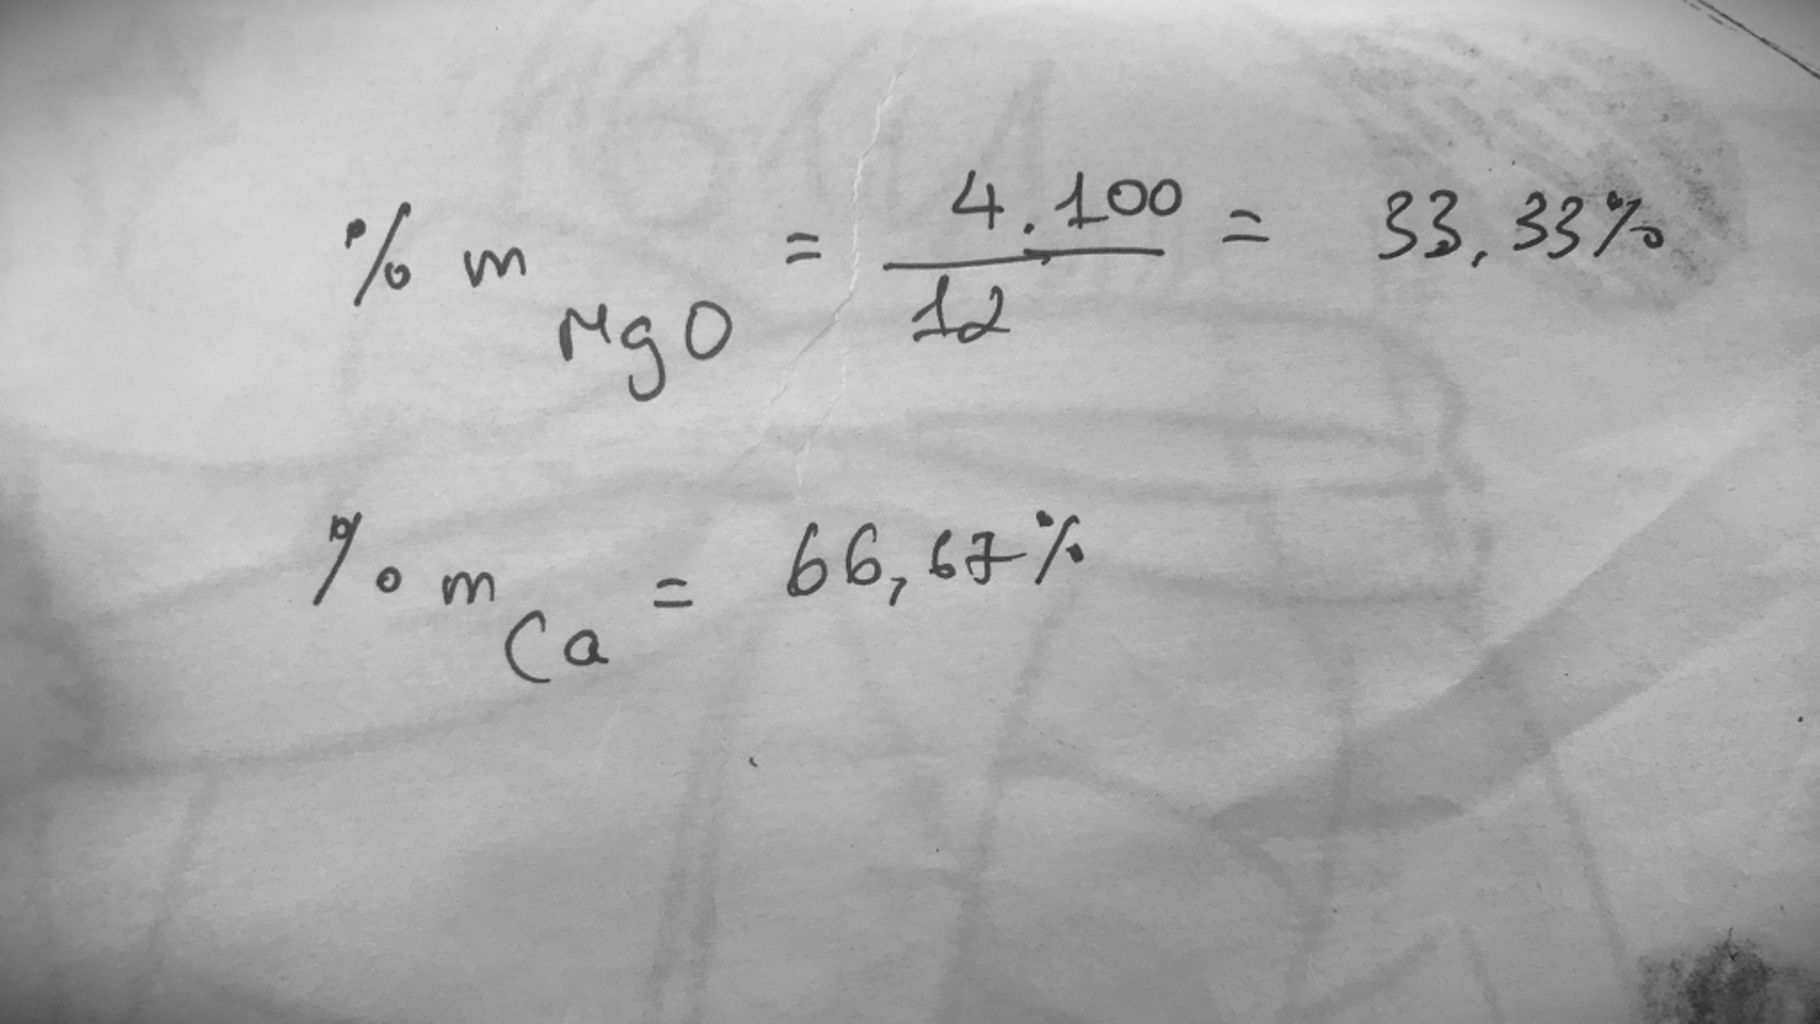 % m MgO = 4.100 / 12 = 33,33%
% m Ca = 66,67%